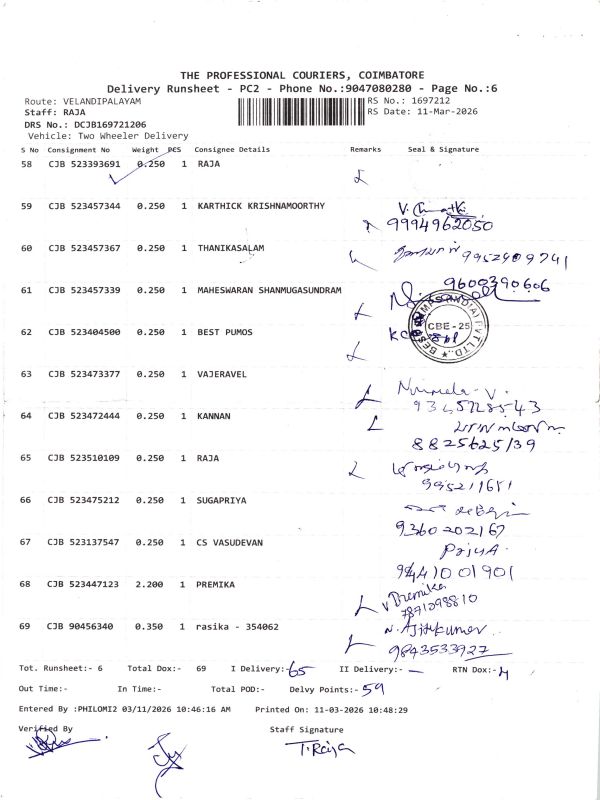 THE PROFESSIONAL COURIERS, COIMBATORE
Delivery Runsheet - PC2 - Phone No.:9047080280 - Page No.:6
Route: VELANDIPALAYAM RS No.: 1697212
Staff: RAJA RS Date: 11-Mar-2026
DRS No.: DCJB169721206
Vehicle: Two Wheeler Delivery
S No Consignment No Weight PCS Consignee Details Remarks Seal & Signature
58 CJB 523393691 0.250 1 RAJA
59 CJB 523457344 0.250 1 KARTHICK KRISHNAMOORTHY
9994962050
60 CJB 523457367 0.250 1 THANIKASALAM
9952909741
61 CJB 523457339 0.250 1 MAHESWARAN SHANMUGASUNDRAM
9600390606
62 CJB 523404500 0.250 1 BEST PUMOS
CBE - 25
63 CJB 523473377 0.250 1 VAJERAVEL
Nirmala - V.
9345728543
64 CJB 523472444 0.250 1 KANNAN
8825625139
65 CJB 523510109 0.250 1 RAJA
66 CJB 523475212 0.250 1 SUGAPRIYA
9360202167
67 CJB 523137547 0.250 1 CS VASUDEVAN
9441001901
68 CJB 523447123 2.200 1 PREMIKA
Premika
7891098810
69 CJB 90456340 0.350 1 rasika - 354062
N. Ajithkumar
9843533927
Tot. Runsheet:- 6 Total Dox:- 69 I Delivery:- 65 II Delivery:- — RTN Dox:- 4
Out Time:- In Time:- Total POD:- Delvy Points:- 59
Entered By :PHILOMI2 03/11/2026 10:46:16 AM Printed On: 11-03-2026 10:48:29
Verified By Staff Signature
T. Raja